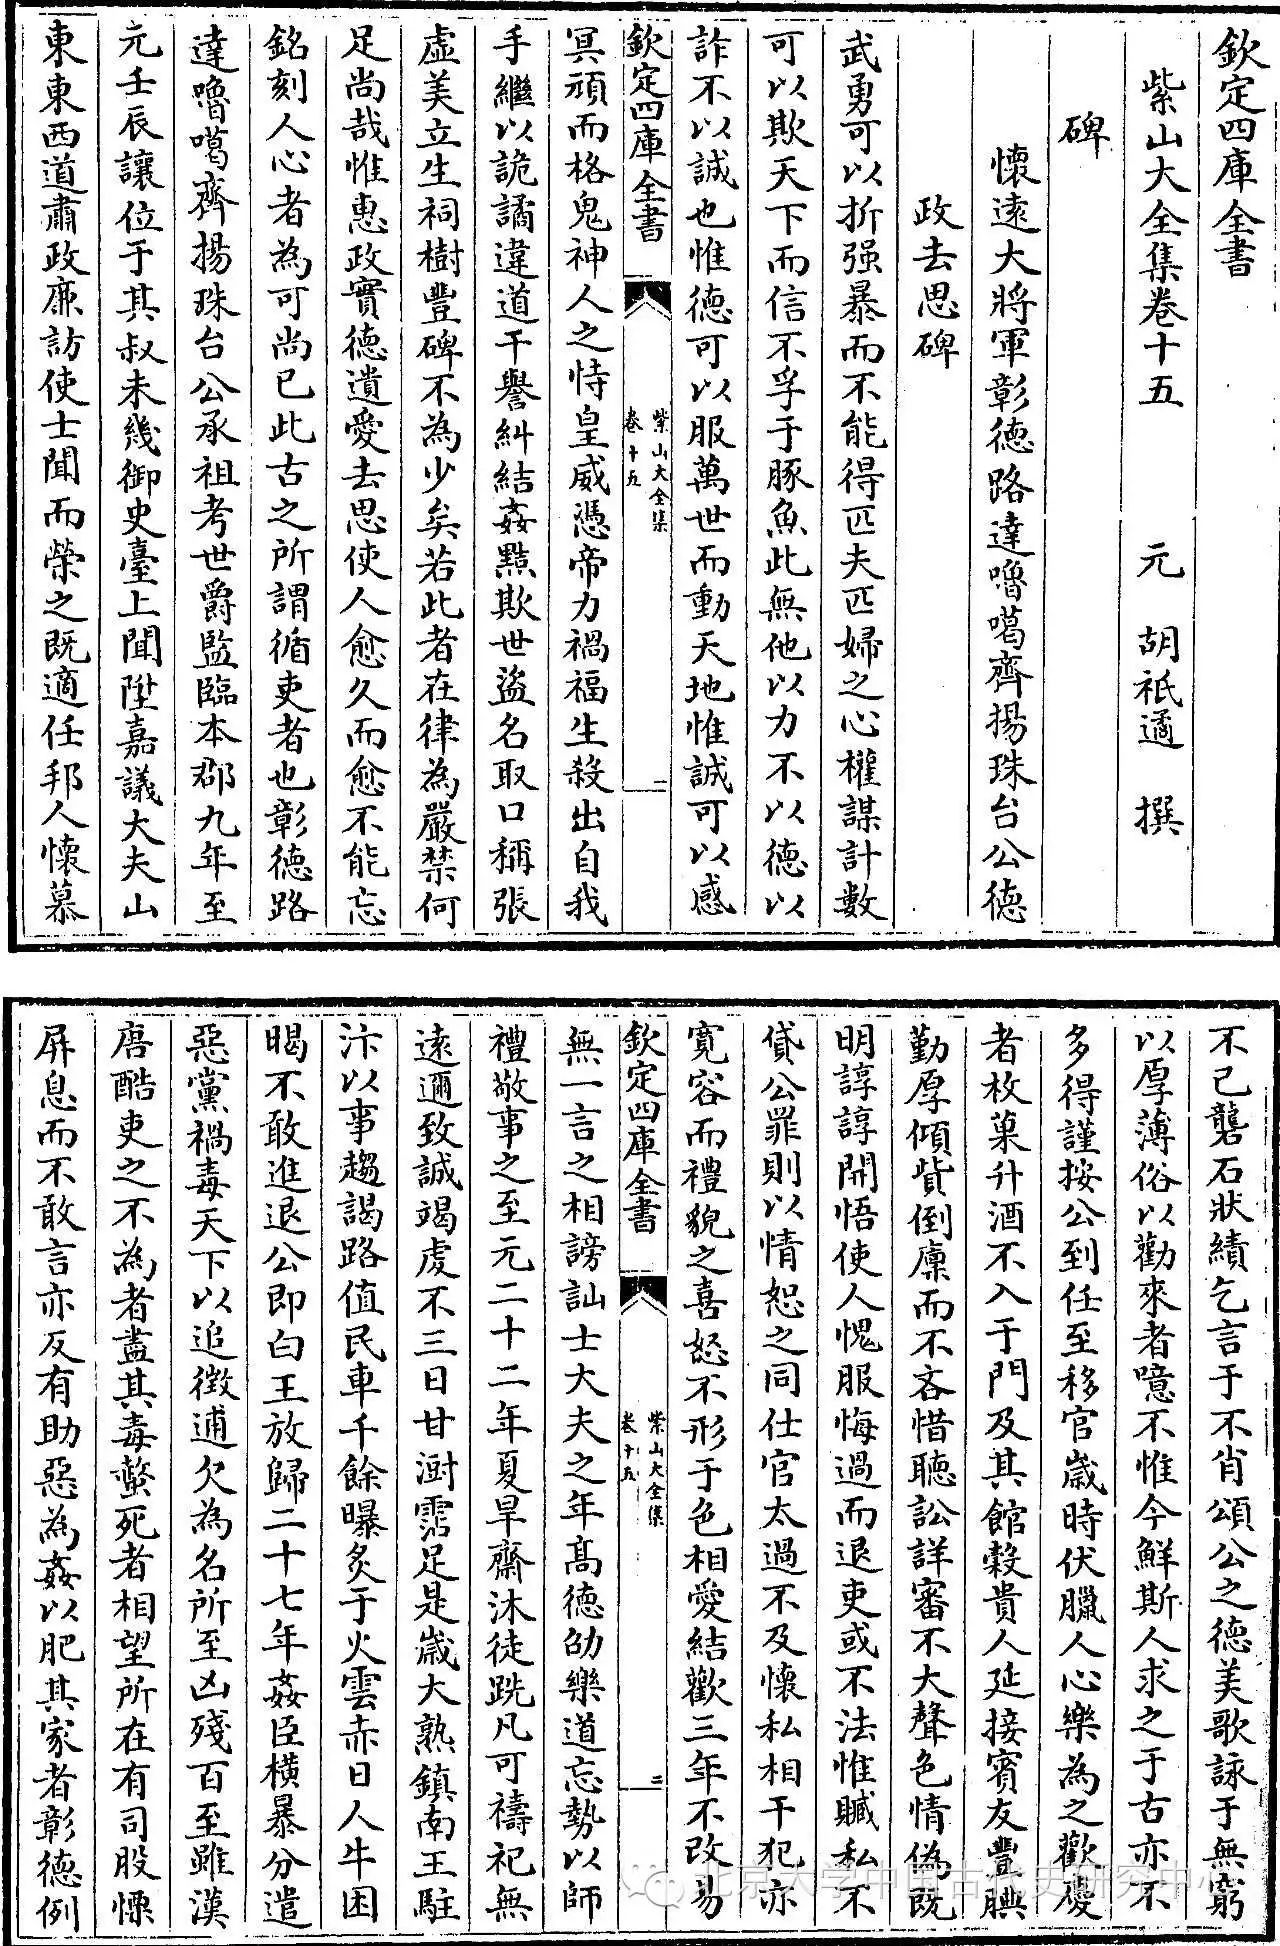 欽定四庫全書
紫山大全集卷十五　元　胡祗遹　撰
碑
懷遠大將軍彰德路達嚕噶齊揚珠台公德
政去思碑
武勇可以折强暴而不能得匹夫匹婦之心權謀計數
可以欺天下而信不孚于豚魚此無他以力不以德以
詐不以誠也惟德可以服萬世而動天地惟誠可以感
欽定四庫全書
紫山大全集
卷十五
一
冥頑而格鬼神人之恃皇威憑帝力禍福生殺出自我
手繼以詭譎違道干譽糾結姦黠欺世盜名取口稱張
虛美立生祠樹豐碑不為少矣若此者在律為嚴禁何
足尚哉惟惠政實德遺愛去思使人愈久而愈不能忘
銘刻人心者為可尚已此古之所謂循吏者也彰德路
達嚕噶齊揚珠台公承祖考世爵監臨本郡九年至
元壬辰讓位于其叔未幾御史臺上聞陞嘉議大夫山
東東西道肅政廉訪使士聞而榮之既適任邦人懷慕
不已礱石狀績乞言于不肖頌公之德美歌詠于無窮
以厚薄俗以勸來者噫不惟今鮮斯人求之于古亦不
多得謹按公到任至移官歲時伏臘人心樂為之歡慶
者枚菓升酒不入于門及其館穀貴人延接賓友豐腆
勤厚傾貲倒廩而不吝惜聽訟詳審不大聲色情偽既
明諄諄開悟使人愧服悔過而退吏或不法惟贓私不
貸公罪則以情恕之同仕官太過不及懷私相干犯亦
寛容而禮貌之喜怒不形于色相愛結歡三年不改易
欽定四庫全書
紫山大全集
卷十五
二
無一言之相謗訕士大夫之年髙德劭樂道忘勢以師
禮敬事之至元二十二年夏旱齋沐徒跣凡可禱祀無
遠邇致誠竭虔不三日甘澍霑足是歲大熟鎮南王駐
汴以事趨謁路值民車千餘曝炙于火雲赤日人牛困
暍不敢進退公即白王放歸二十七年姦臣橫暴分遣
惡黨禍毒天下以追徵逋欠為名所至凶殘百至雖漢
唐酷吏之不為者盡其毒螫死者相望所在有司股慄
屏息而不敢言亦反有助惡為姦以肥其家者彰德例
北京大学中国古代史研究中心